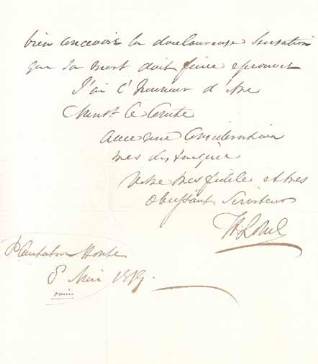 bien concevoir la douloureuse sensation
que sa mort doit faire eprouver
J'ai l'honneur d'être
Monsr le Comte
avec une Consideration
tres distinguée
Votre tres fidele et tres
Obeissant Serviteur
H Lowe
Plantation House
8 Mai 1819.